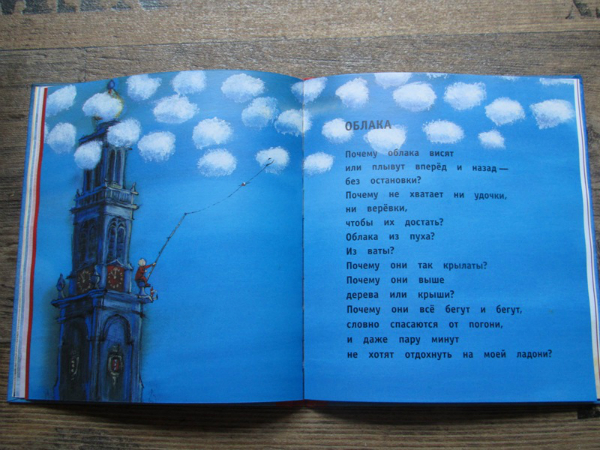 ОБЛАКА
Почему облака висят
или плывут вперёд и назад —
без остановки?
Почему не хватает ни удочки,
ни верёвки,
чтобы их достать?
Облака из пуха?
Из ваты?
Почему они так крылаты?
Почему они выше
дерева или крыши?
Почему они всё бегут и бегут,
словно спасаются от погони,
и даже пару минут
не хотят отдохнуть на моей ладони?